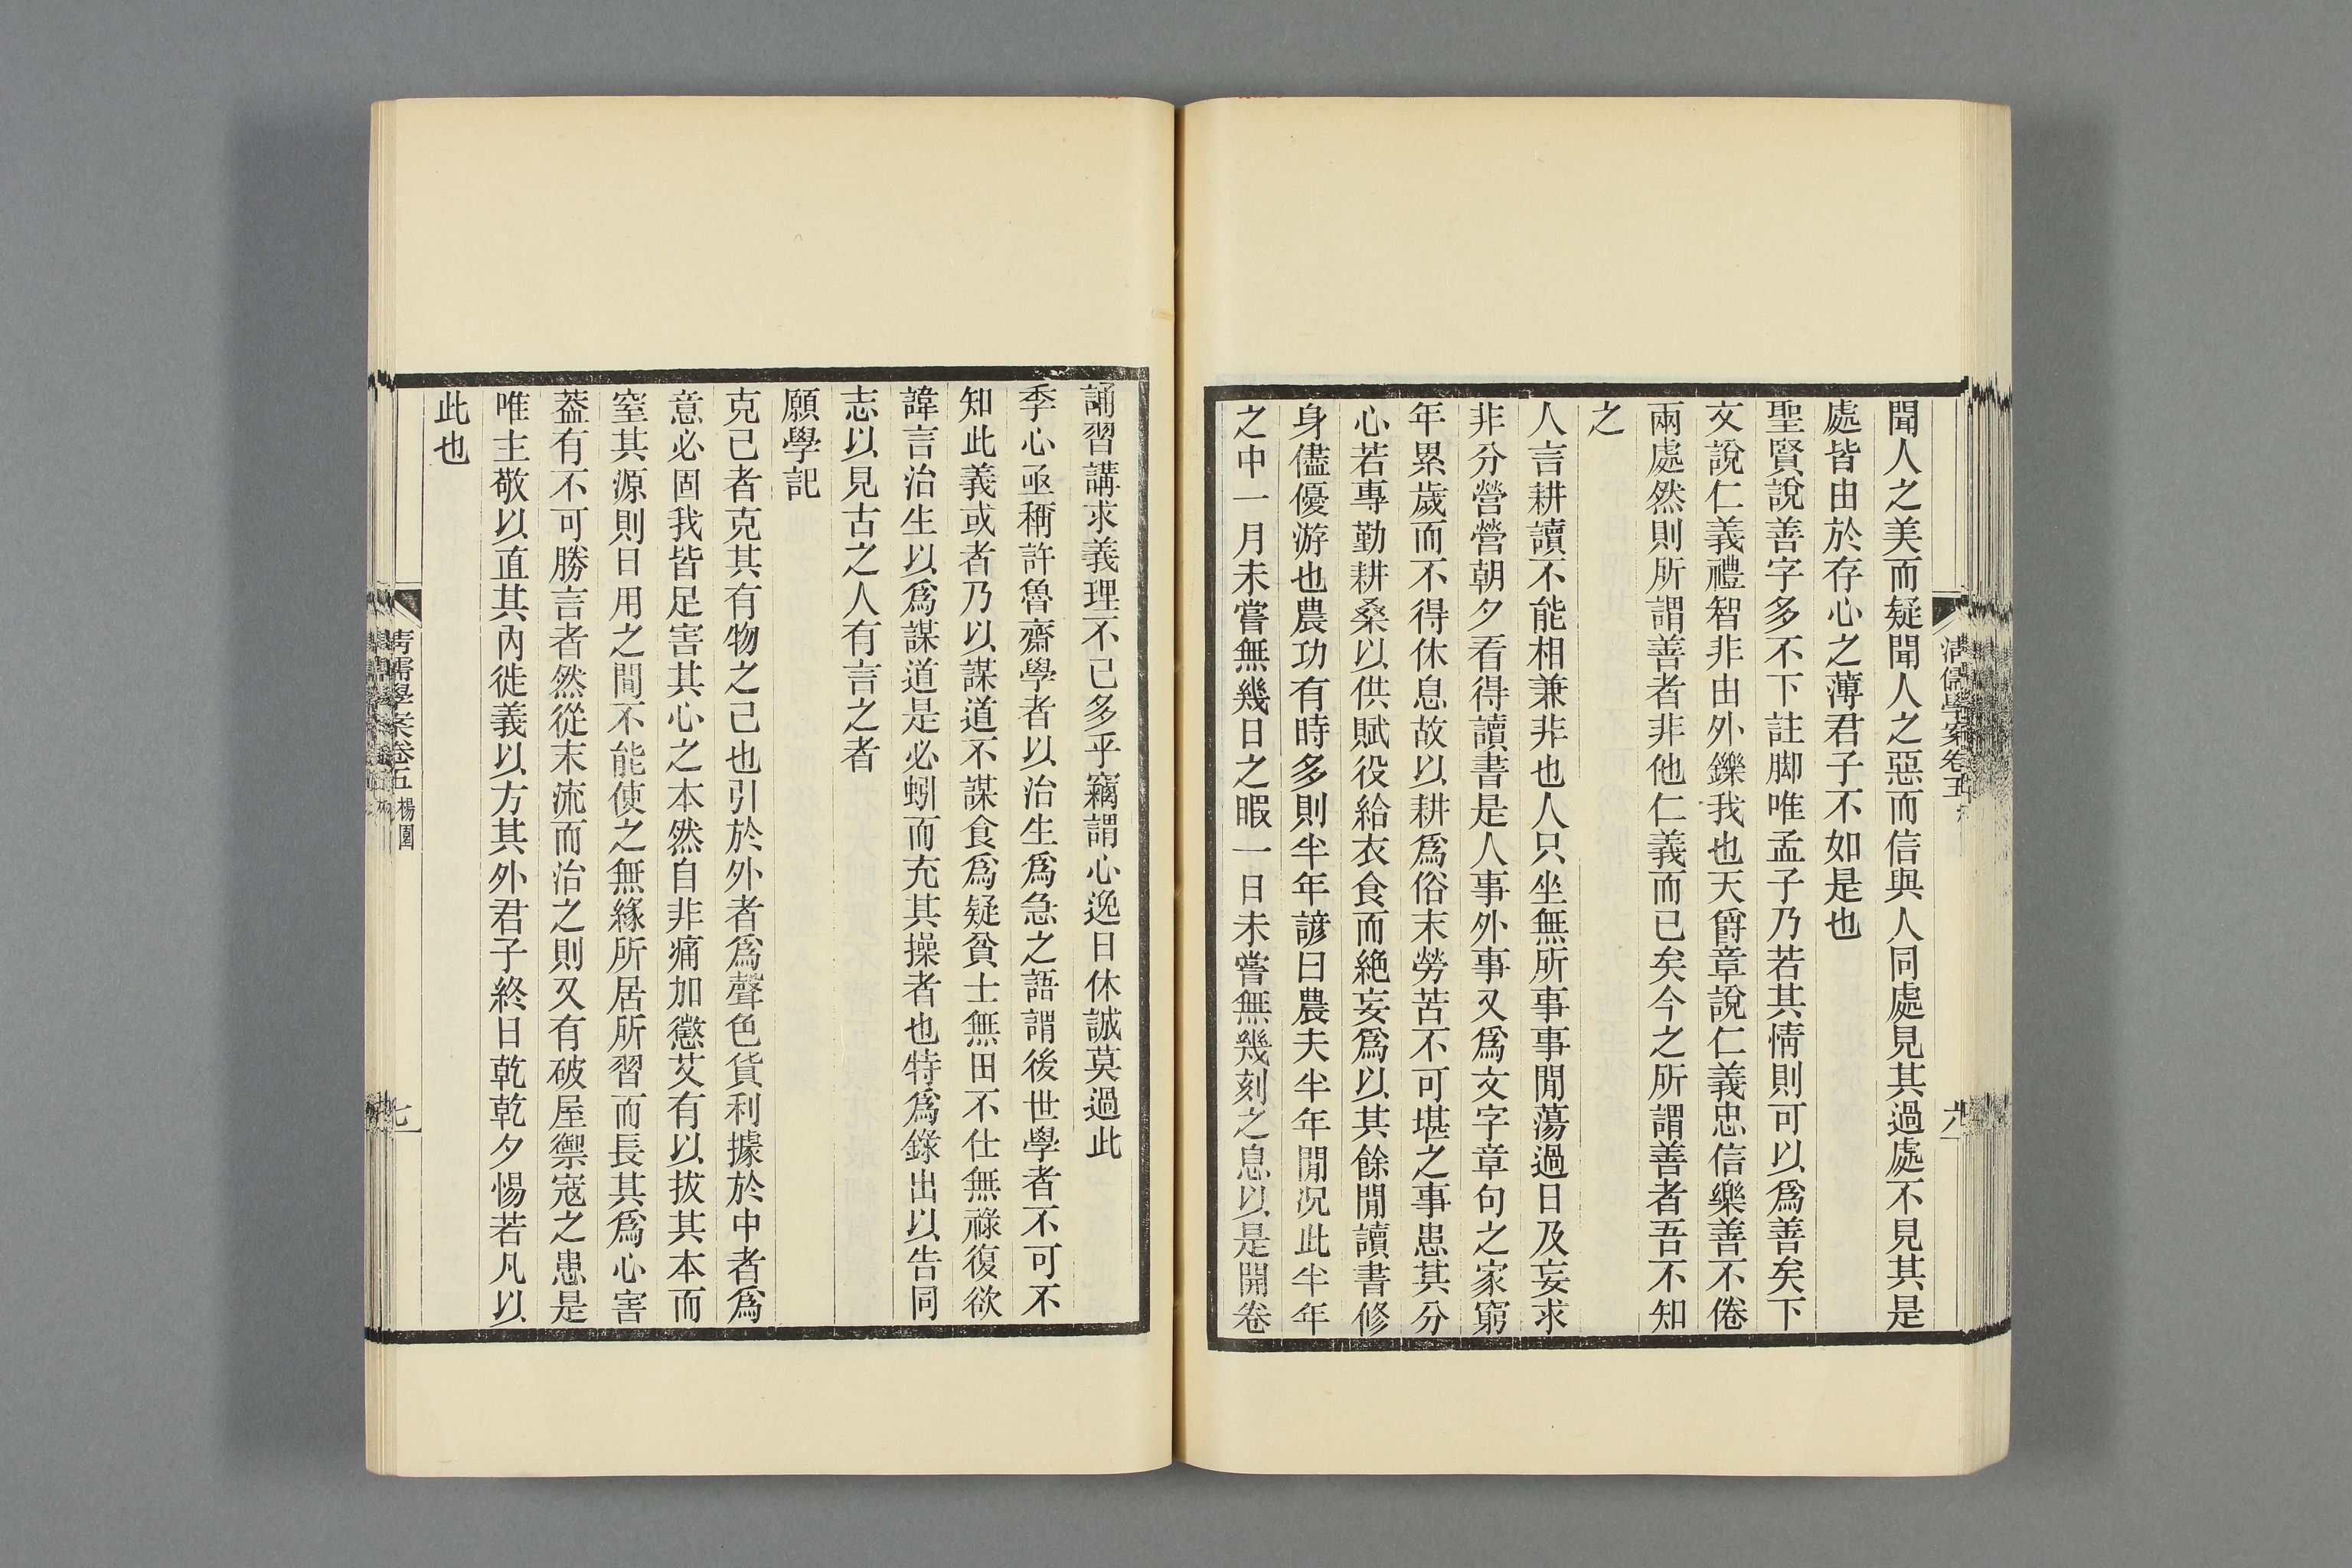 清儒學案卷五
六
聞人之美而疑聞人之惡而信與人同處見其過處不見其是
處皆由於存心之薄君子不如是也
聖賢說善字多不下註脚唯孟子乃若其情則可以爲善矣下
文說仁義禮智非由外鑠我也天爵章說仁義忠信樂善不倦
兩處然則所謂善者非他仁義而已矣今之所謂善者吾不知
之
人言耕讀不能相兼非也人只坐無所事事閒蕩過日及妄求
非分營營朝夕看得讀書是人事外事又爲文字章句之家窮
年累歲而不得休息故以耕爲俗末勞苦不可堪之事患其分
心若專勤耕桑以供賦役給衣食而絕妄爲以其餘閒讀書修
身儘優游也農功有時多則半年諺曰農夫半年閒況此半年
之中一月未嘗無幾日之暇一日未嘗無幾刻之息以是開卷
誦習講求義理不已多乎竊謂心逸日休誠莫過此
季心亟稱許魯齋學者以治生爲急之語謂後世學者不可不
知此義或者乃以謀道不謀食爲疑貧士無田不仕無祿復欲
諱言治生以爲謀道是必蚓而充其操者也特爲錄出以告同
志以見古之人有言之者
願學記
克己者克其有物之己也引於外者爲聲色貨利據於中者爲
意必固我皆足害其心之本然自非痛加懲艾有以拔其本而
窒其源則日用之間不能使之無緣所居所習而長其爲心害
葢有不可勝言者然從末流而治之則又有破屋禦寇之患是
唯主敬以直其內徙義以方其外君子終日乾乾夕惕若凡以
此也
清儒學案卷五 楊園
七